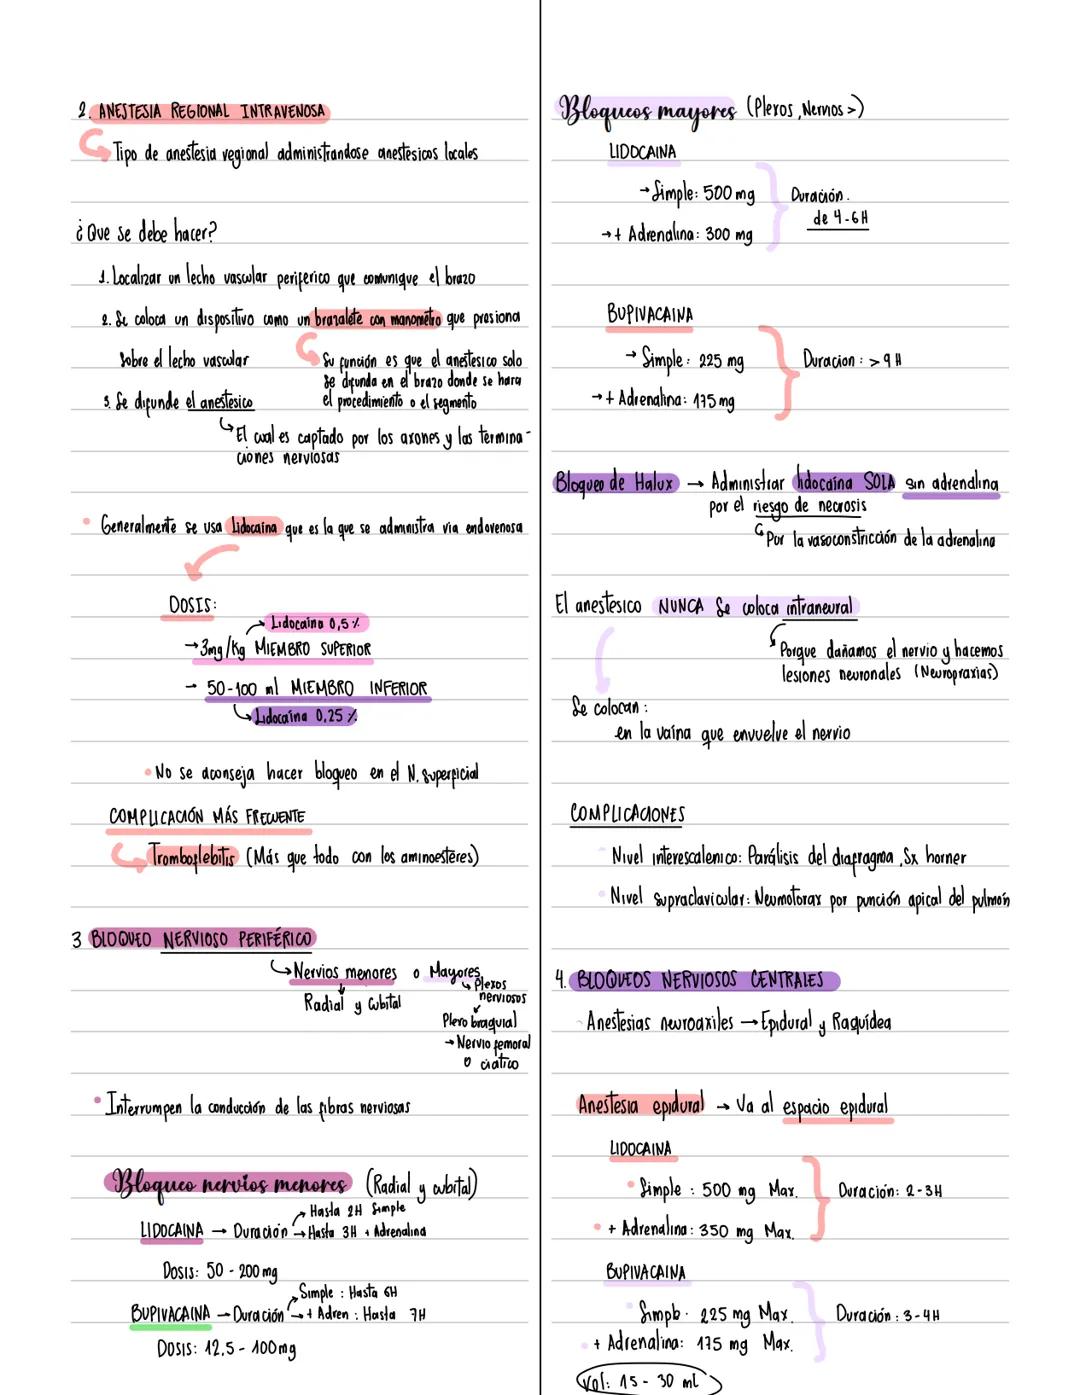 2. ANESTESIA REGIONAL INTRAVENOSA
Tipo de anestesia regional administrandose anestésicos locales
¿Que se debe hacer?
1. Localizar un lecho vascular periferico que comunique el brazo
2. Se coloca un dispositivo como un brazalete con manometro que presiona
sobre el lecho vascular
Su función es que el anestesico solo
se difunda en el brazo donde se hara
el procedimiento o el segmento
3. Se difunde el anestesico
El cual es captado por los axones y las termina-
ciones nerviosas
• Generalmente se usa Lidocaina que es la que se administra via endovenosa
DOSIS:
Lidocaina 0,5%
→ 3mg/kg MIEMBRO SUPERIOR
→ 50-100 ml MIEMBRO INFERIOR
Lidocaína 0,25%
• No se aconseja hacer bloqueo en el N. superficial
COMPLICACIÓN MÁS FRECUENTE
Tromboflebitis (Más que todo con los aminoesteres)
3 BLOQUEO NERVIOSO PERIFÉRICO
Nervios menores o Mayores
Radial y cubital
Plexos
nerviosos
Plexo braquial
→ Nervio femoral
o ciatico
• Interrumpen la conducción de las fibras nerviosas
Bloqueo nervios menores (Radial y cubital)
LIDOCAINA → Duración
→ Hasta 2H Simple
→ Hasta 3H + Adrenalina
DOSIS: 50 - 200 mg
BUPIVACAINA → Duración
Simple : Hasta 6H
→ + Adren : Hasta 7H
DOSIS: 12.5 - 100mg
Bloqueos mayores (Plexos, Nervios >)
LIDOCAINA
→ Simple: 500 mg
→ + Adrenalina: 300 mg
Duración.
de 4-6H
BUPIVACAINA
→ Simple: 225 mg
→ + Adrenalina: 175 mg
Duracion : > 9 H
Bloqueo de Halux → Administrar lidocaína SOLA sin adrenalina
por el riesgo de necrosis
Por la vasoconstricción de la adrenalina
El anestésico NUNCA se coloca intraneural
Porque dañamos el nervio y hacemos
lesiones neuronales (Neuropraxias)
Se colocan :
en la vaína que envuelve el nervio
COMPLICACIONES
• Nivel interescalenico: Parálisis del diafragma, Sx horner
• Nivel supraclavicular: Neumotorax por punción apical del pulmón
4. BLOQUEOS NERVIOSOS CENTRALES
- Anestesias neuroaxiles → Epidural y Raquídea
Anestesia epidural → Va al espacio epidural
LIDOCAINA
• Simple : 500 mg Max.
• + Adrenalina: 350 mg Max.
Duración: 2-3H
BUPIVACAINA
• Simple: 225 mg Max.
• + Adrenalina: 175 mg Max.
Duración : 3-4H
Vol: 15 - 30 ml